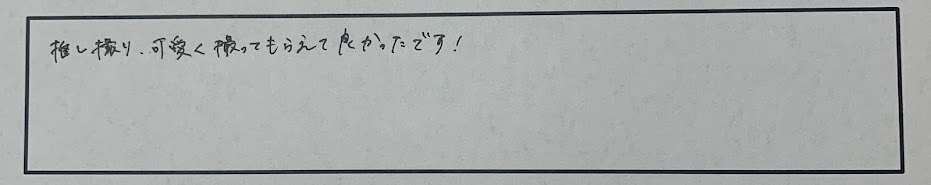 推し撮り、可愛く撮ってもらえて良かったです!